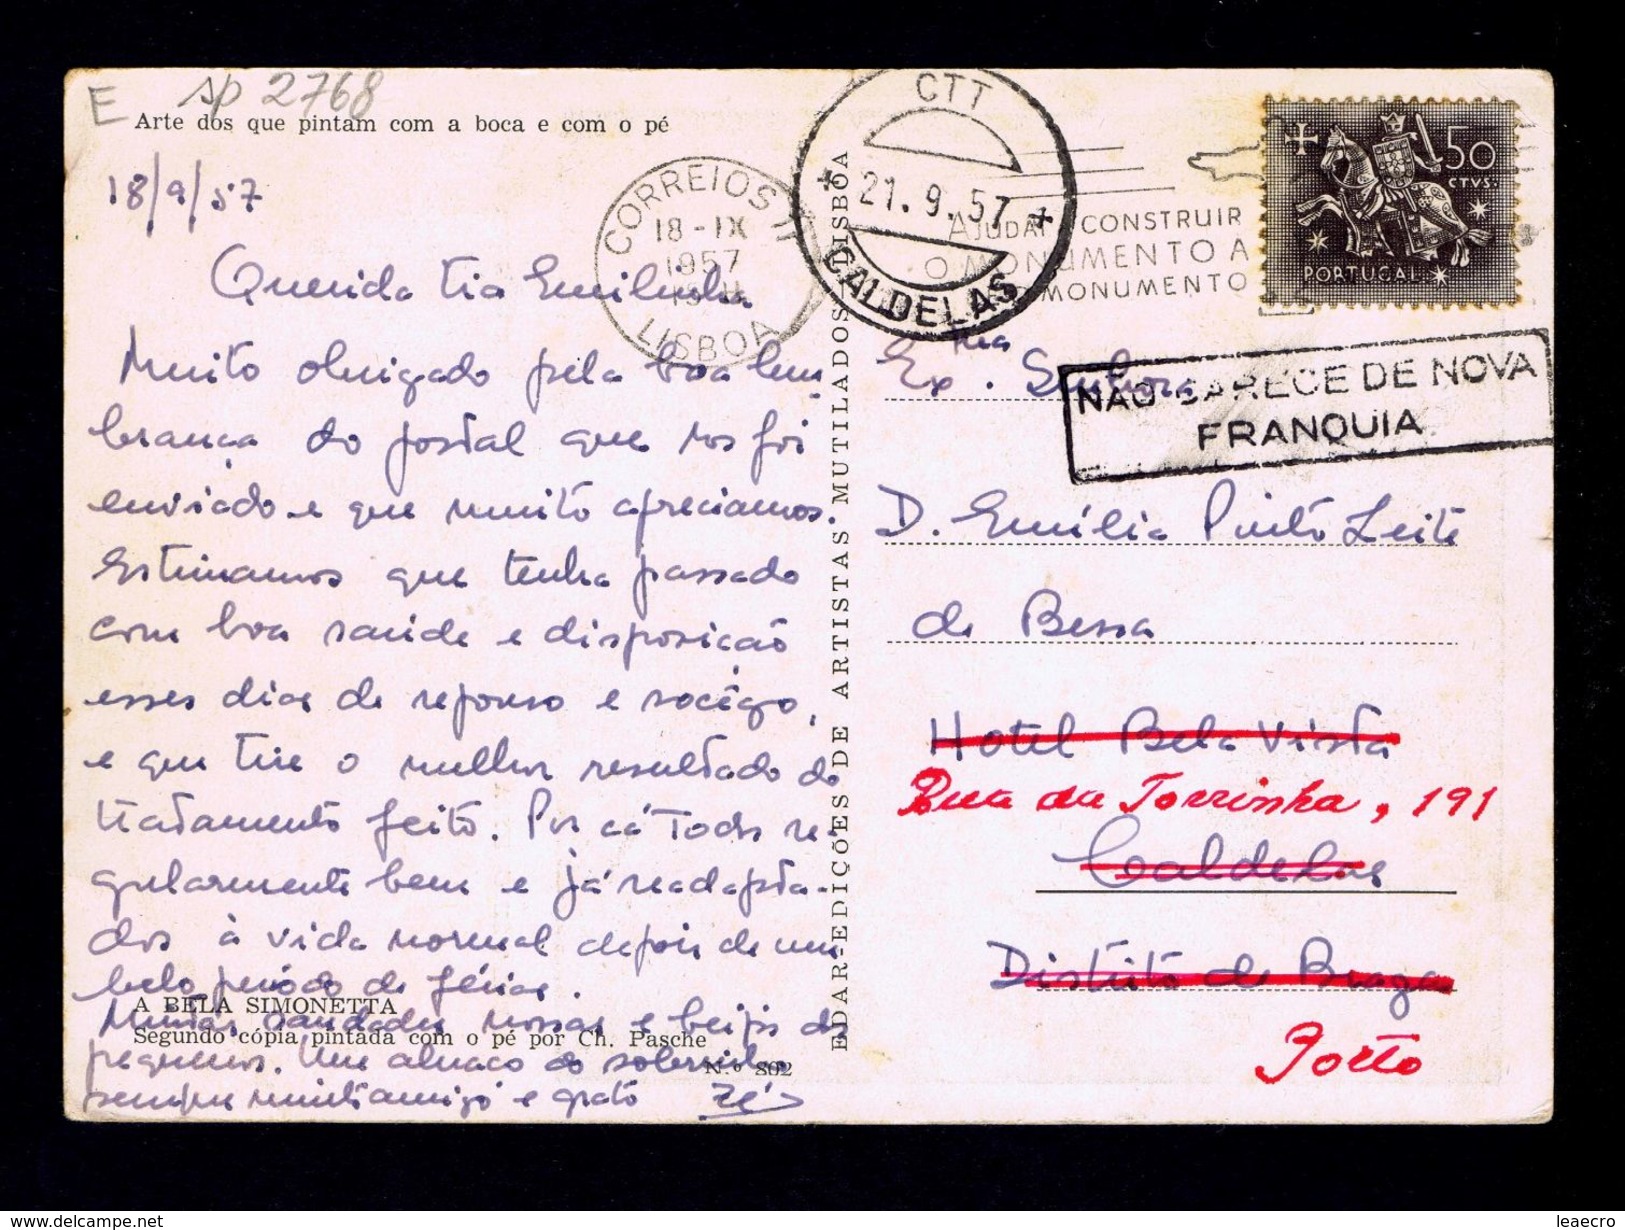 E sp 2768
Arte dos que pintam com a boca e com o pé
18/9/57
Querida tia Emilinha
Muito obrigado pela boa lem
brança do postal que nos foi
enviado e que muito apreciamos.
Estimamos que tenha passado
com boa saúde e disposição
esses dias de repouso e socêgo,
e que tire o melhor resultado do
tratamento feito. Por cá todos re-
gularmente bem e já readapta-
dos à vida normal depois de um
belo período de férias.
Muitas saudades nossas e beijos dos
pequenos. Um abraço do sobrinho
sempre muito amigo e grato Zé
A BELA SIMONETTA
Segundo cópia pintada com o pé por Ch. Pasche
N.º 802
EDAR-EDIÇÕES DE ARTISTAS MUTILADOS LISBOA
CORREIOS
18-IX
1957
LISBOA
CTT
21.9.57
CALDELAS
AJUDAR CONSTRUIR
O MONUMENTO A
MONUMENTO
50
CTVS.
PORTUGAL
NÃO CARECE DE NOVA
FRANQUIA
Ex.ma Senhora
D. Emília Pinto Leite
de Bessa
Hotel Bela Vista
Rua da Torrinha, 191
Caldelas
Distrito de Braga
Porto
leaecro
www.delcampe.net